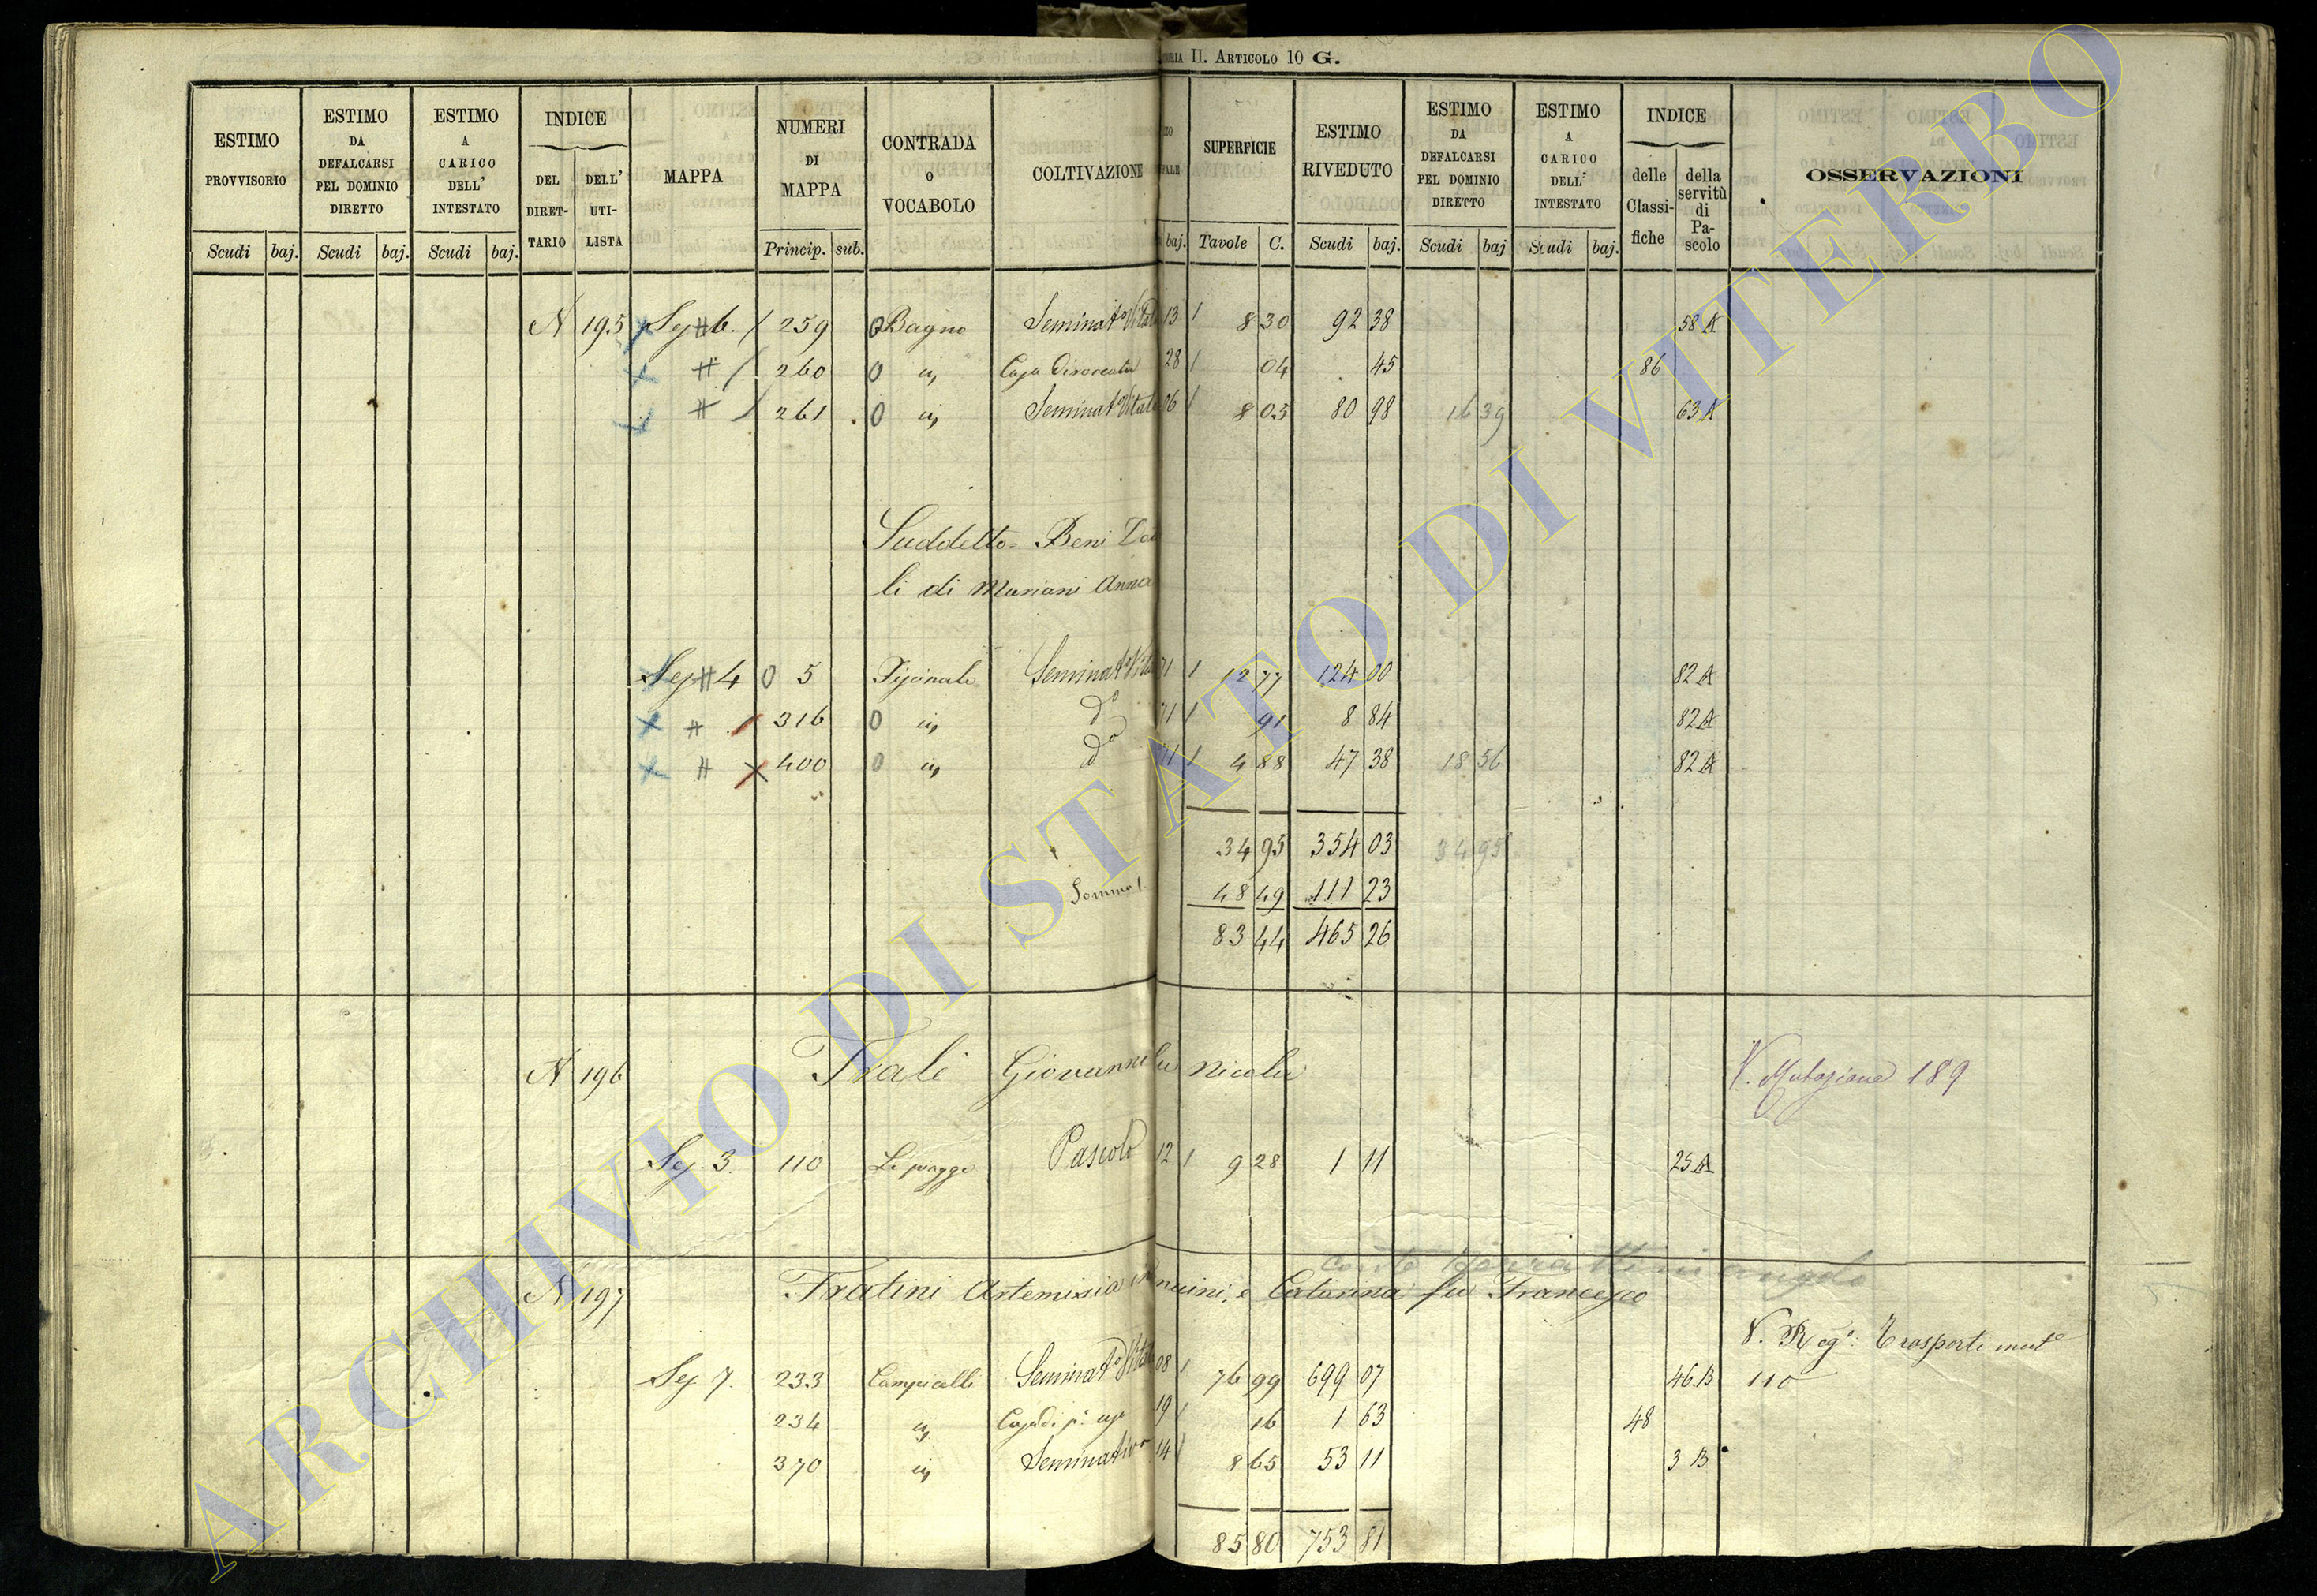 II. ARTICOLO 10 G.
ESTIMO PROVVISORIO
ESTIMO DA DEFALCARSI PEL DOMINIO DIRETTO
ESTIMO A CARICO DELL' INTESTATO
INDICE
DEL DIRET-TARIO
DELL' UTI-LISTA
MAPPA
NUMERI DI MAPPA
CONTRADA O VOCABOLO
COLTIVAZIONE
SUPERFICIE
ESTIMO RIVEDUTO
ESTIMO DA DEFALCARSI PEL DOMINIO DIRETTO
ESTIMO A CARICO DELL' INTESTATO
INDICE
delle Classi-fiche
della servitù di Pa-scolo
OSSERVAZIONI
Scudi baj. Scudi baj. Scudi baj. Princip. sub. baj. Tavole C. Scudi baj. Scudi baj Scudi baj.
N 195 Sez 6. 259 Bagno Seminat° Vitato 13 8 30 92 38 58 A
260 28 04 45 86
261 Seminat° Vitato 06 8 05 80 98 16 39 63 A
Suddetto= Beni Do
li di Mariani Anna
Sez 4 5 Seminat° Vita 71 12 77 124 00 82 A
316 d° 71 91 8 84 82 A
400 d° 71 4 88 47 38 18 56 82 A
34 95 354 03 34 95
48 49 111 23
83 44 465 26
N 196 Frale Giovanni fu Nicola V. Mutazione 189
Sez. 3. 110 Le piagge Pascolo 12 9 28 1 11 25 A
N 197 Fratini Artemisia e Caterina fu Francesco
V. Reg°: Trasporti mut°
Sez 7. 233 Campicelli Seminat° Vitato 08 76 99 699 07 46.B 110
234 19 16 1 63 48
370 Seminativo 14 8 65 53 11 3 B
85 80 753 81
ARCHIVIO DI STATO DI VITERBO